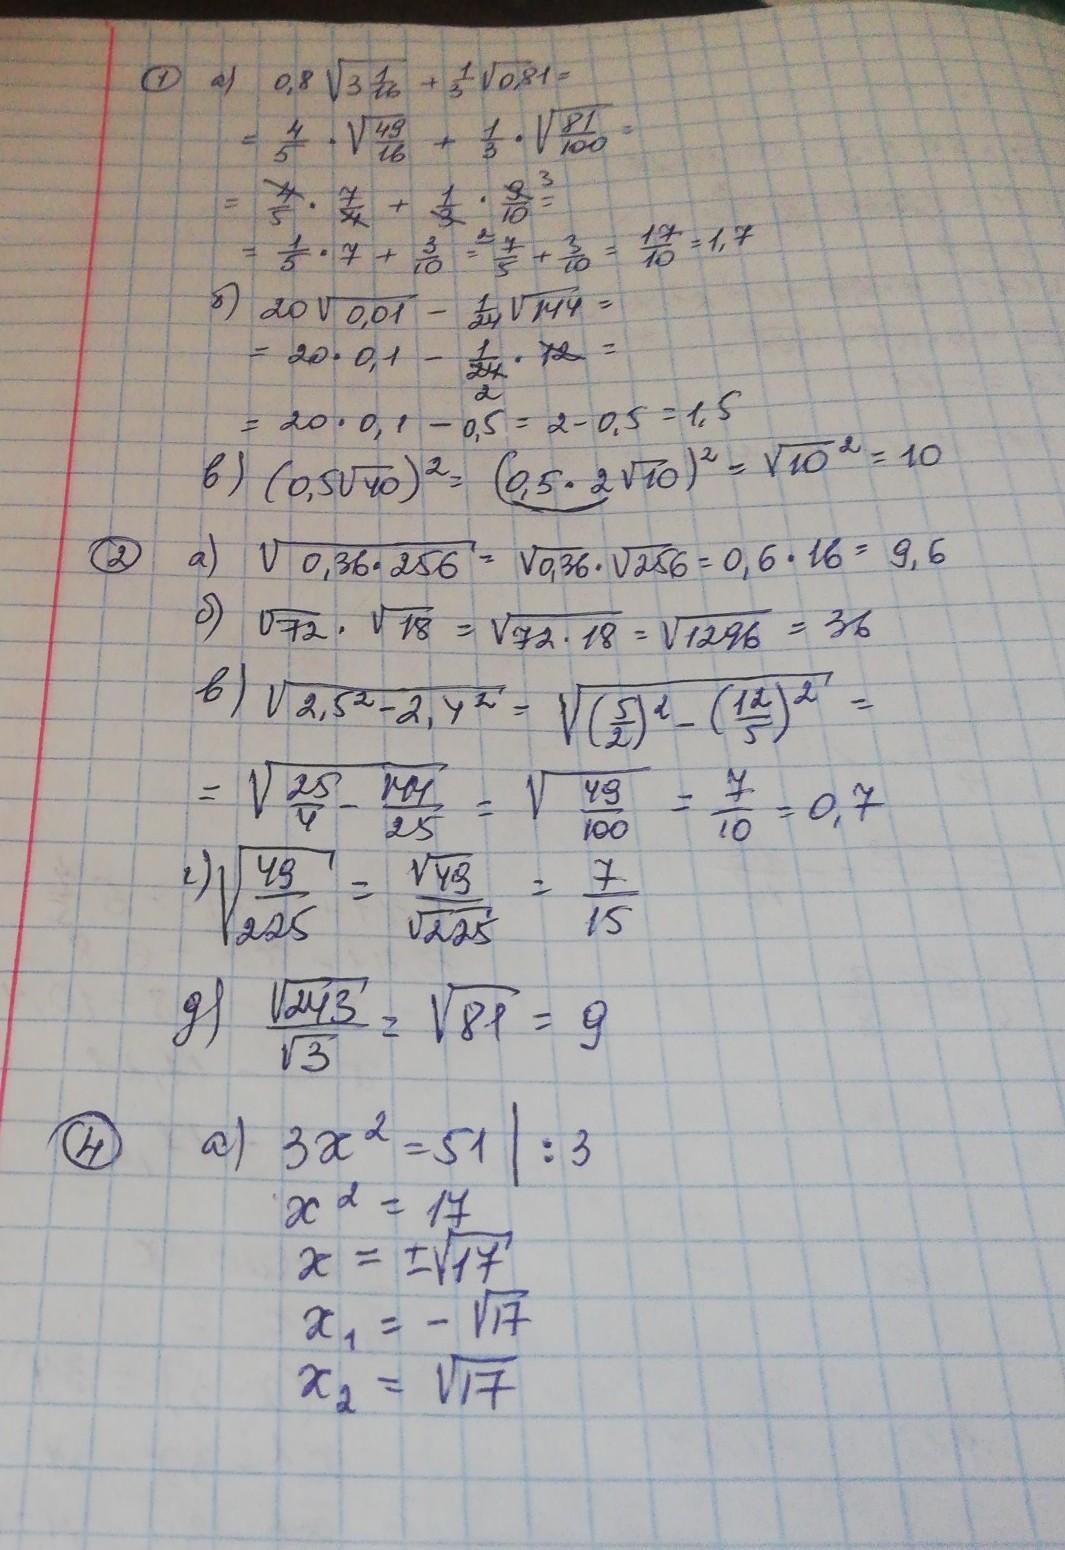 ① а) 0,8 √(3 1/16) + 1/3 √0,81 =
= 4/5 · √(49/16) + 1/3 · √(81/100) =
= 4/5 · 7/4 + 1/3 · 9/10 3 =
= 1/5 · 7 + 3/10 = 2 7/5 + 3/10 = 17/10 = 1,7
б) 20√0,01 − 1/24 √144 =
= 20 · 0,1 − 1/24 · 12 =
2
= 20 · 0,1 − 0,5 = 2 − 0,5 = 1,5
в) (0,5√40)² = (0,5 · 2√10)² = √10² = 10
② а) √(0,36 · 256) = √0,36 · √256 = 0,6 · 16 = 9,6
б) √72 · √18 = √(72 · 18) = √1296 = 36
в) √(2,5² − 2,4²) = √((5/2)² − (12/5)²) =
= √(25/4 − 144/25) = √(49/100) = 7/10 = 0,7
г) √(49/225) = √49/√225 = 7/15
д) √243/√3 = √81 = 9
④ а) 3x² = 51 | : 3
x² = 17
x = ±√17
x₁ = − √17
x₂ = √17